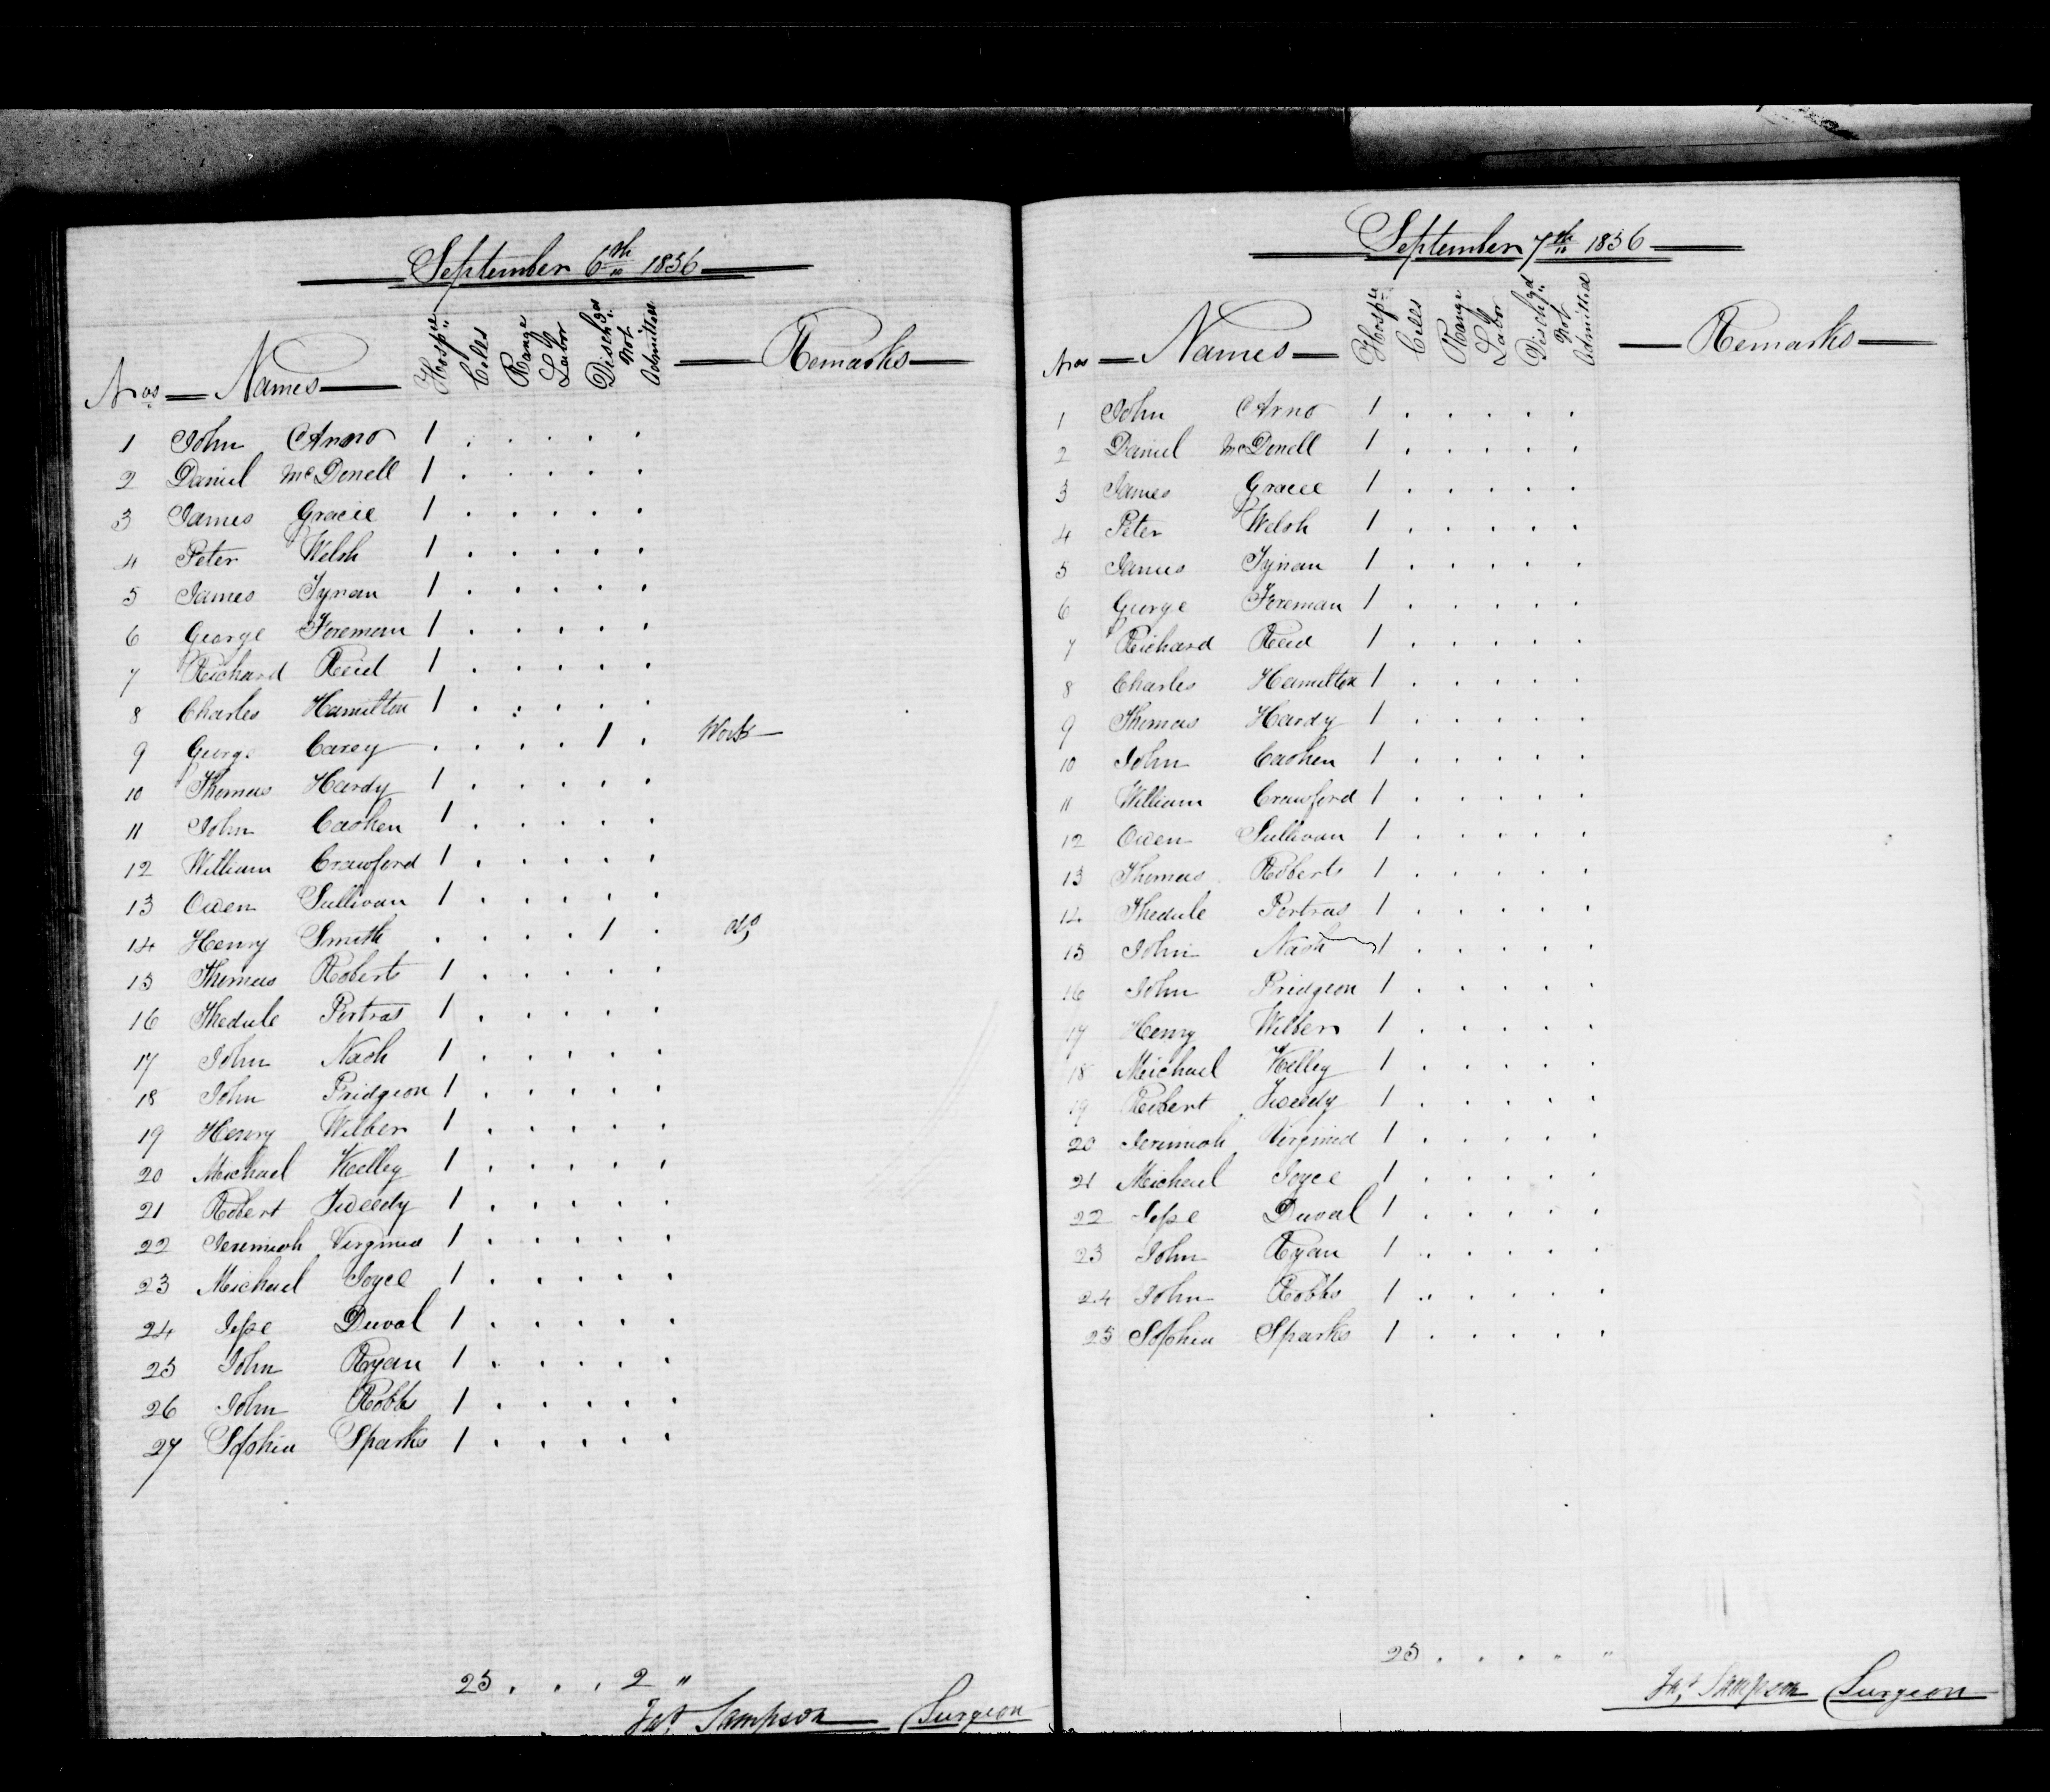 September 6th 1856
Nos Names Hospl Cells Range Labor Dischgd Not Admitted Remarks
1 John Arno 1 . . . . .
2 Daniel McDonell 1 . . . . .
3 James Gracie 1 . . . . .
4 Peter Welsh 1 . . . . .
5 James Tynan 1 . . . . .
6 George Foreman 1 . . . . .
7 Richard Reid 1 . . . . .
8 Charles Hamilton 1 . . . . .
9 George Carey . . . . 1 . Work
10 Thomas Hardy 1 . . . . .
11 John Cashen 1 . . . . .
12 William Crawford 1 . . . . .
13 Owen Sullivan 1 . . . . .
14 Henry Smith . . . . 1 . do
15 Thomas Roberts 1 . . . . .
16 Thedule Portras 1 . . . . .
17 John Nash 1 . . . . .
18 John Pridgeon 1 . . . . .
19 Henry Wilber 1 . . . . .
20 Michael Kelley 1 . . . . .
21 Robert Tweedy 1 . . . . .
22 Jeremiah 1 . . . . .
23 Michael Joyce 1 . . . . .
24 Jesse Duval 1 . . . . .
25 John Ryan 1 . . . . .
26 John Robbs 1 . . . . .
27 Sophia Sparks 1 . . . . .
25 . . . 2 "
Jas Sampson Surgeon
September 7th 1856
Nos Names Hospl Cells Range Labor Dischgd Not Admitted Remarks
1 John Arno 1 . . . . .
2 Daniel McDonell 1 . . . . .
3 James Gracie 1 . . . . .
4 Peter Welsh 1 . . . . .
5 James Tynan 1 . . . . .
6 George Foreman 1 . . . . .
7 Richard Reid 1 . . . . .
8 Charles Hamilton 1 . . . . .
9 Thomas Hardy 1 . . . . .
10 John Cashen 1 . . . . .
11 William Crawford 1 . . . . .
12 Owen Sullivan 1 . . . . .
13 Thomas Roberts 1 . . . . .
14 Thedule Portras 1 . . . . .
15 John Nash 1 . . . . .
16 John Pridgeon 1 . . . . .
17 Henry Wilber 1 . . . . .
18 Michael Kelley 1 . . . . .
19 Robert Tweedy 1 . . . . .
20 Jeremiah 1 . . . . .
21 Michael Joyce 1 . . . . .
22 Jesse Duval 1 . . . . .
23 John Ryan 1 . . . . .
24 John Robbs 1 . . . . .
25 Sophia Sparks 1 . . . . .
25 . . . . "
Jas Sampson Surgeon